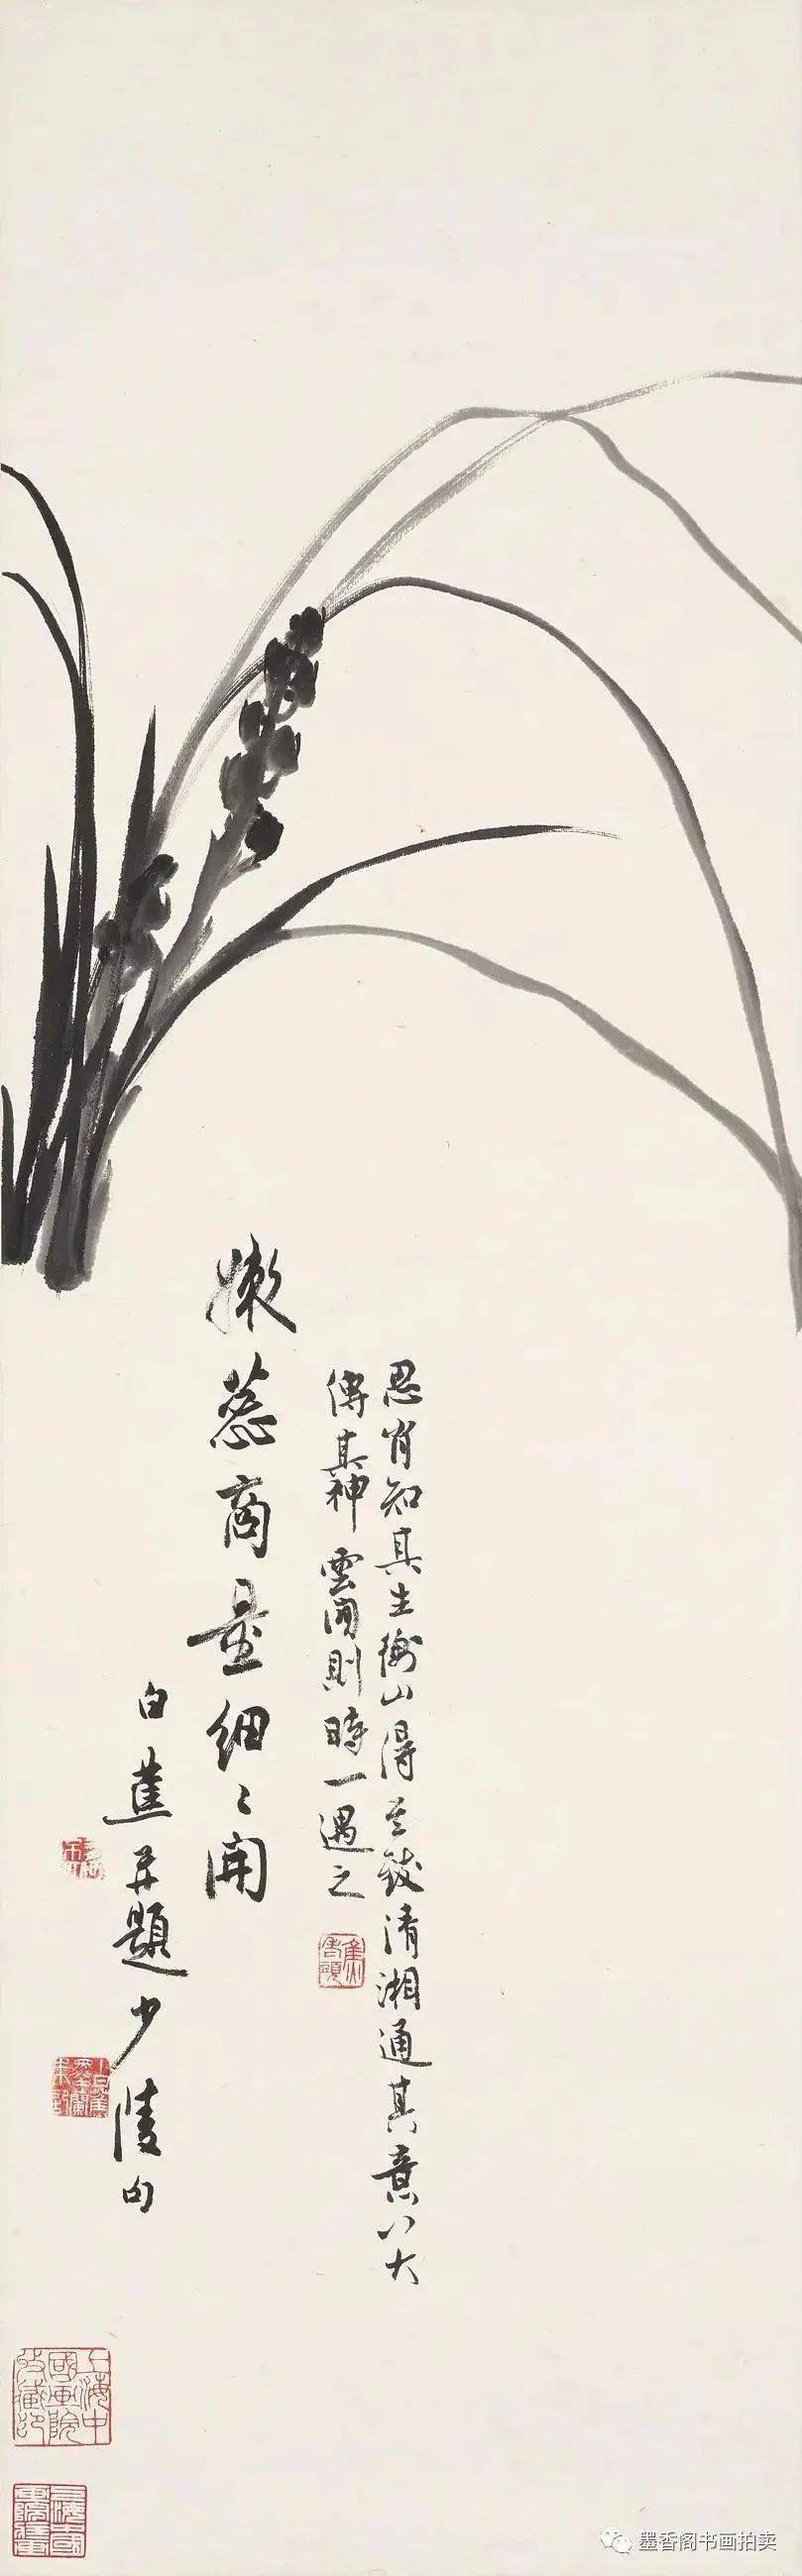 思肖知其生衡山得其致清湘通其意八大
傳其神雲間則時一遇之
嫩蕊商量細〻開
白蕉并題少陵句
上海中
國画院
收藏印
墨香阁书画拍卖